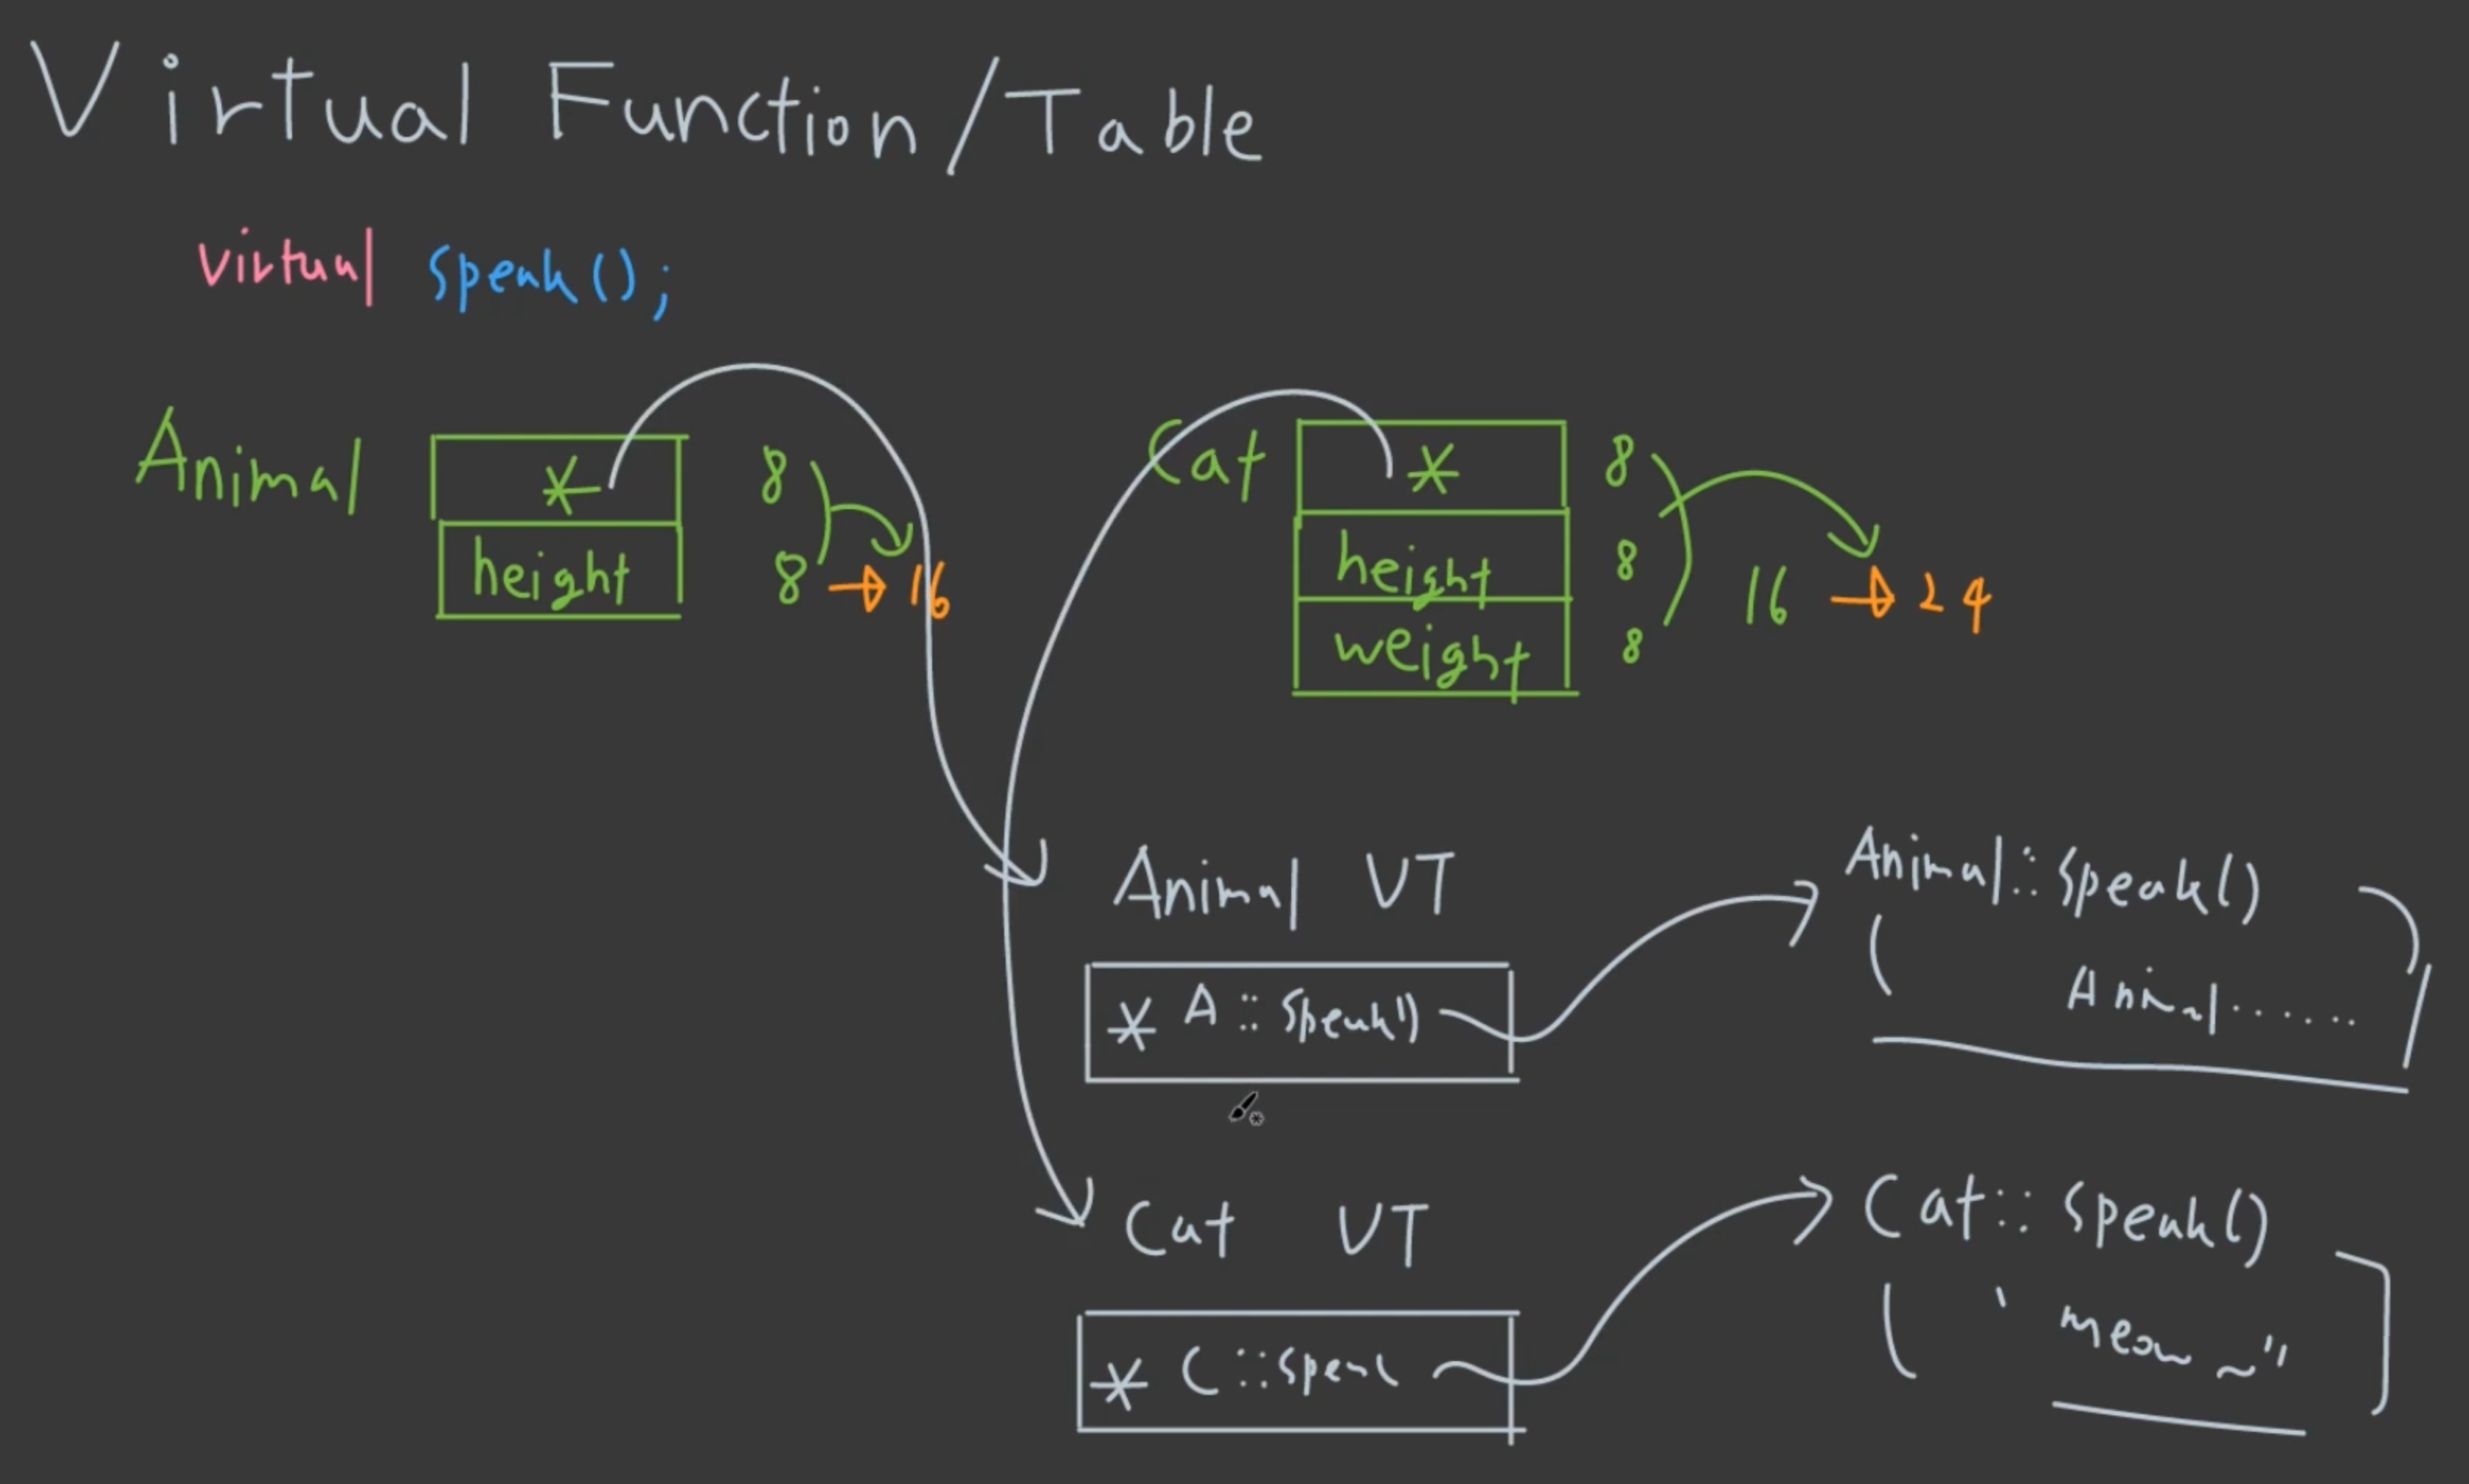 Virtual Function/Table
virtual speak();
Animal
*
8
height
8 → 16
Cat
*
8
height
8
16 → 24
weight
8
Animal VT
* A::speak()
Animal::speak()
Animal......
Cat VT
* C::speak
Cat::speak()
" meow ~"